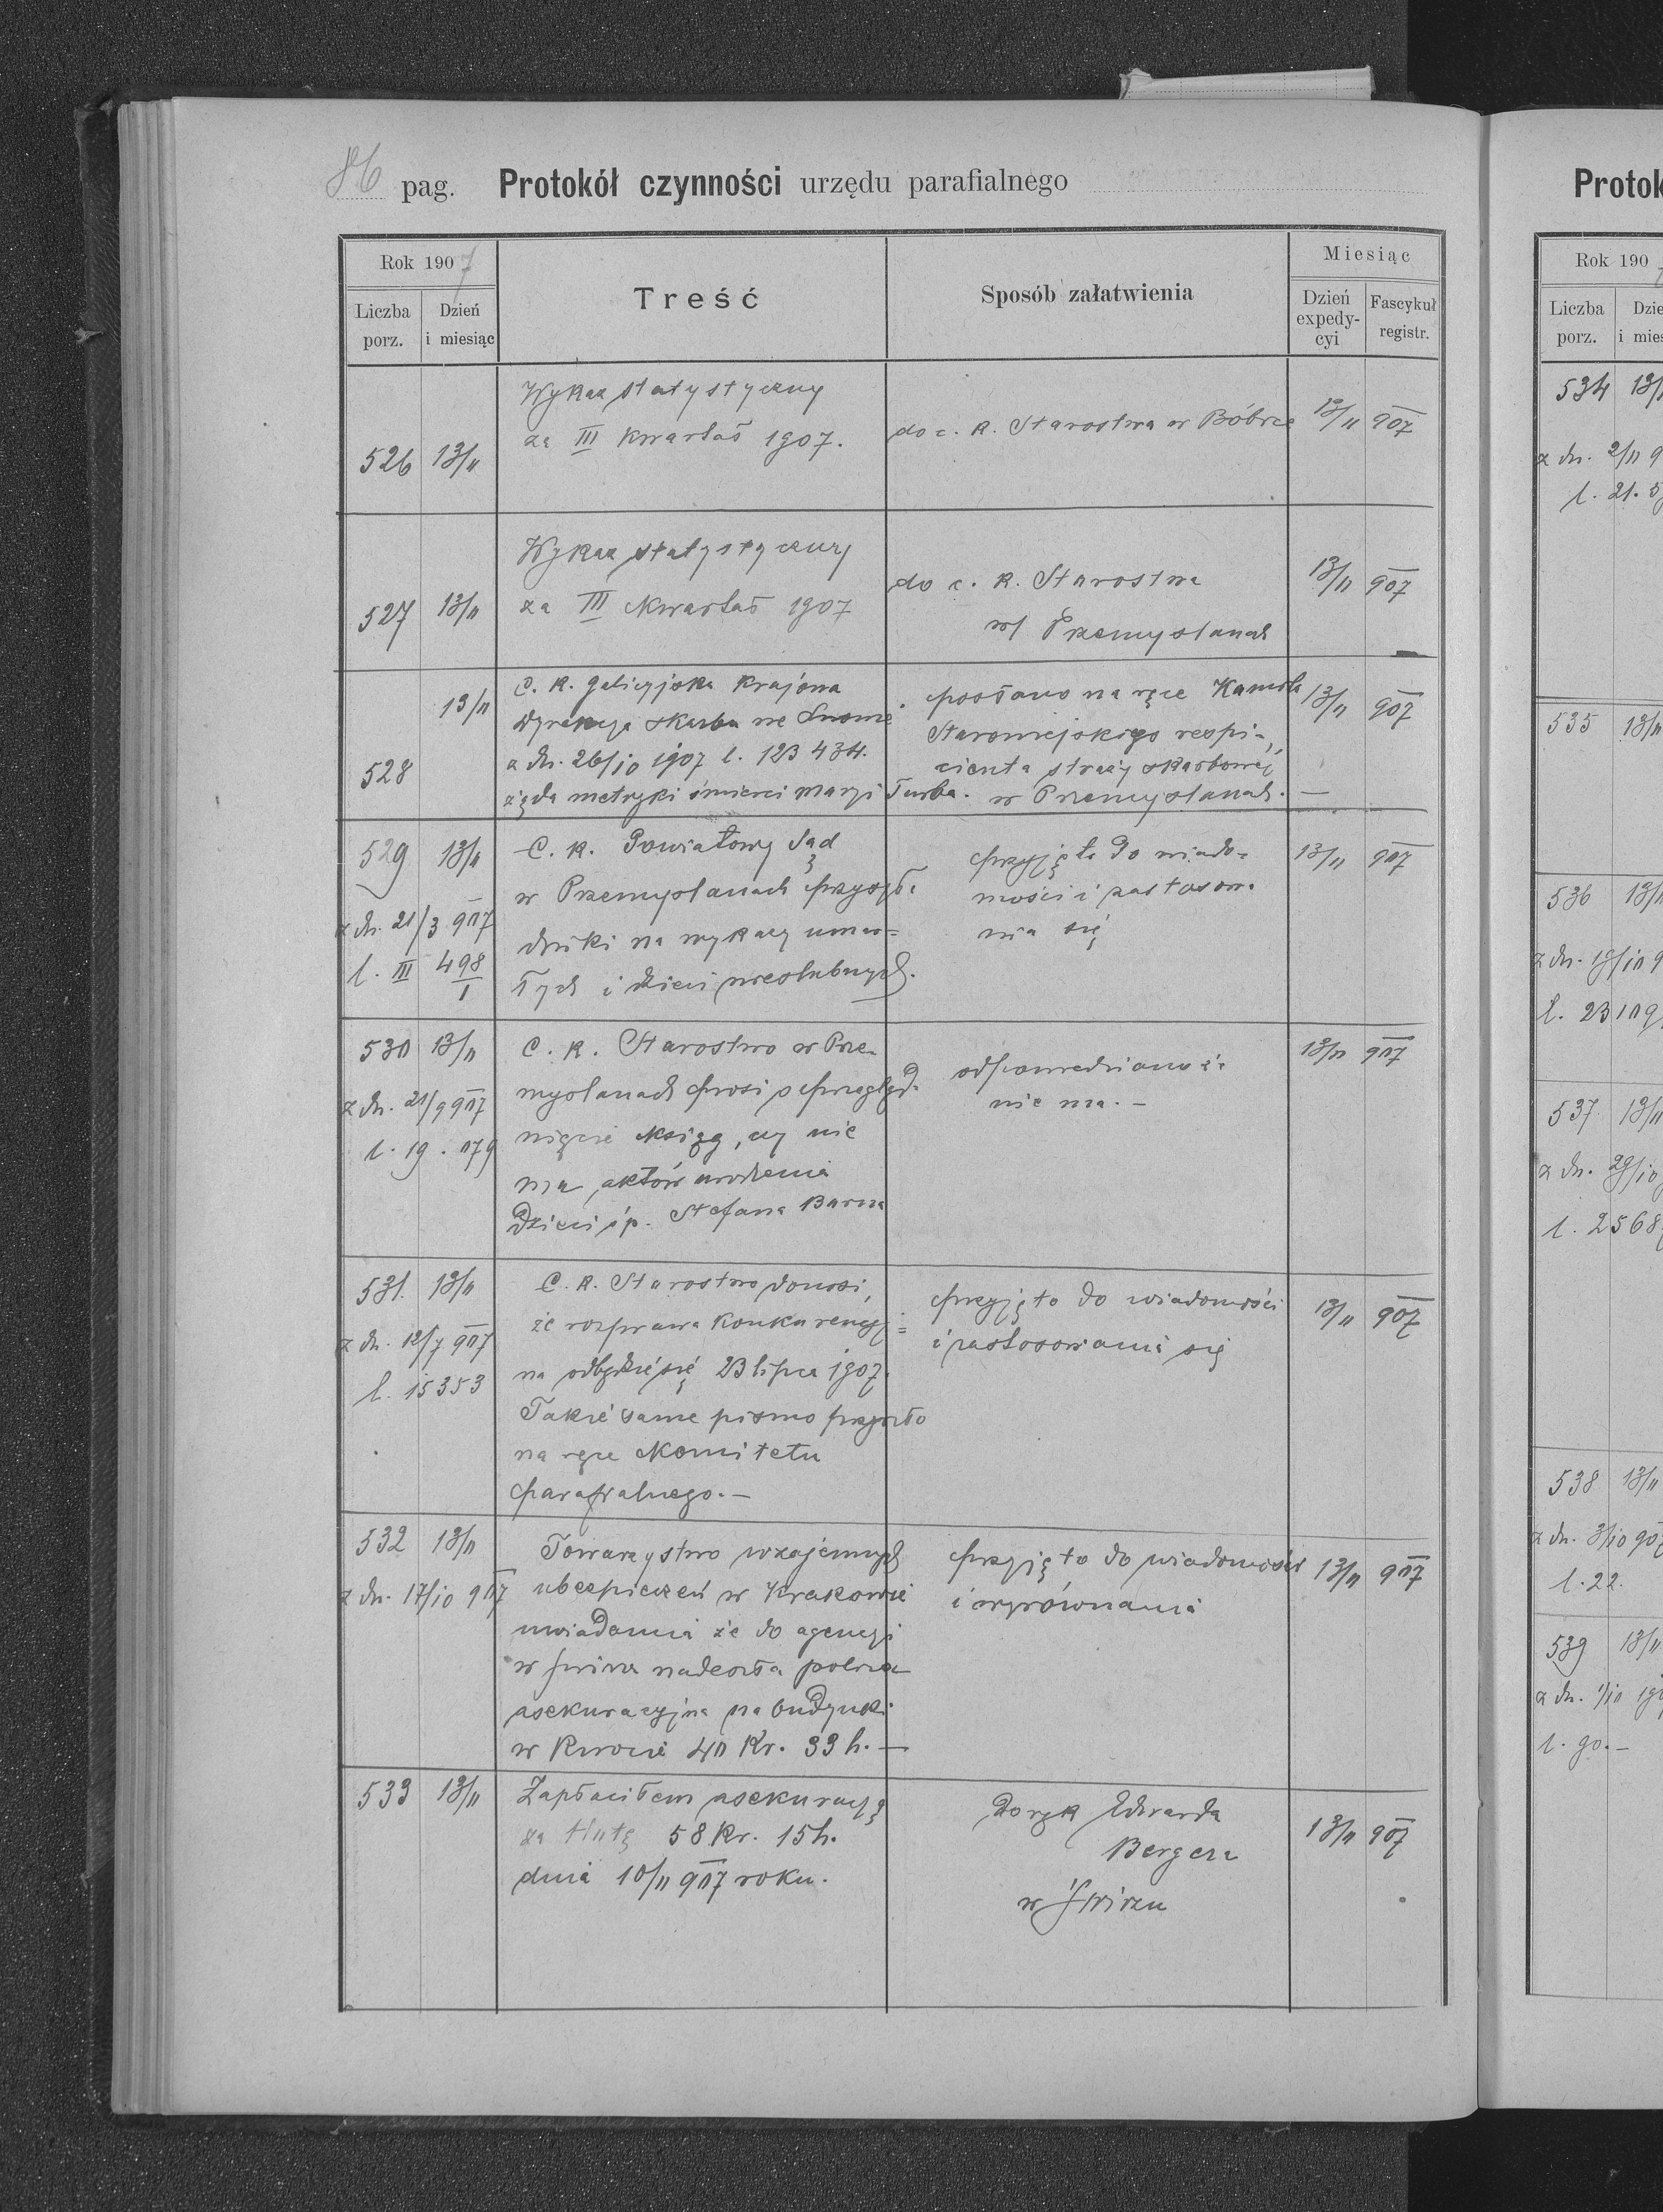 86 pag. Protokół czynności urzędu parafialnego
Rok 1907
Liczba porz.
Dzień i miesiąc
Treść
Sposób załatwienia
Miesiąc
Dzień expedycyi
Fascykuł registr.
526 13/11
Wykaz statystyczny
za III kwartał 1907.
do c. k. Starostwa w Bóbrce
13/11 907
527 13/11
Wykaz statystyczny
za III kwartał 1907
do c. k. Starostwa
w Przemyslanach
13/11 907
528 13/11
C. k. galicyjska krajowa
Dyrekcya skarbu we Lwowie
z dn. 26/10 1907 l. 123 434.
żąda metryki śmierci Maryi Turba.
posłano na ręce Kamila
Staromiejskiego respi-
cienta straży skarbowej
w Przemyslanach. —
13/11 907
529 13/11
z dn. 21/3 907
l. III 498/1
C. k. Powiatowy Sąd
w Przemyslanach przysyła
druki na wykazy umar=
łych i dzieci nieslubnych.
przyjęto do wiado=
mości i zastosowa
nia się
13/11 907
530 13/11
z dn. 21/9 907
l. 19. 079
C. k. Starostwo w Prze-
myslanach prosi o przegląd-
nięcie ksiąg, czy nie
ma aktów urodzenia
Dzieci śp. Stefana Barna
odpowiedziano że
nie ma. —
13/11 907
531. 13/11
z dn. 12/7 907
l. 15353
C. k. Starostwo donosi,
że rozprawa konkurencyj=
na odbędzie się 23 lipca 1907.
Takie same pismo przyszło
na ręce Komitetu
parafialnego. —
przyjęto do wiadomości
i zastosowania się
13/11 907
532 13/11
z dn. 17/10 907
Towarzystwo wzajemnych
ubezpieczeń w Krakowie
uwiadamia że do agencyi
w Świrzu nadeszła polica
asekuracyjna na budynki
w kwocie 40 Kr. 33 h. —
przyjęto do wiadomości
i wyrównania
13/11 907
533 13/11
Zapłaciłem asekuracyę
za Hutę 58 Kr. 15 h.
dnia 10/11 907 roku.
Do rąk Edwarda
Bergera
w Świrzu
13/11 907
Protok
Rok 190
Liczba porz.
534 13/11
z dn. 2/11 9
l. 21. 5
535 13/11
536 13/11
z dn. 19/10 9
l. 23109
537 13/11
z dn. 29/10
l. 2568
538 13/11
z dn. 3/10 907
l. 22.
539 13/11
z dn. 1/10 190
l. 90. —